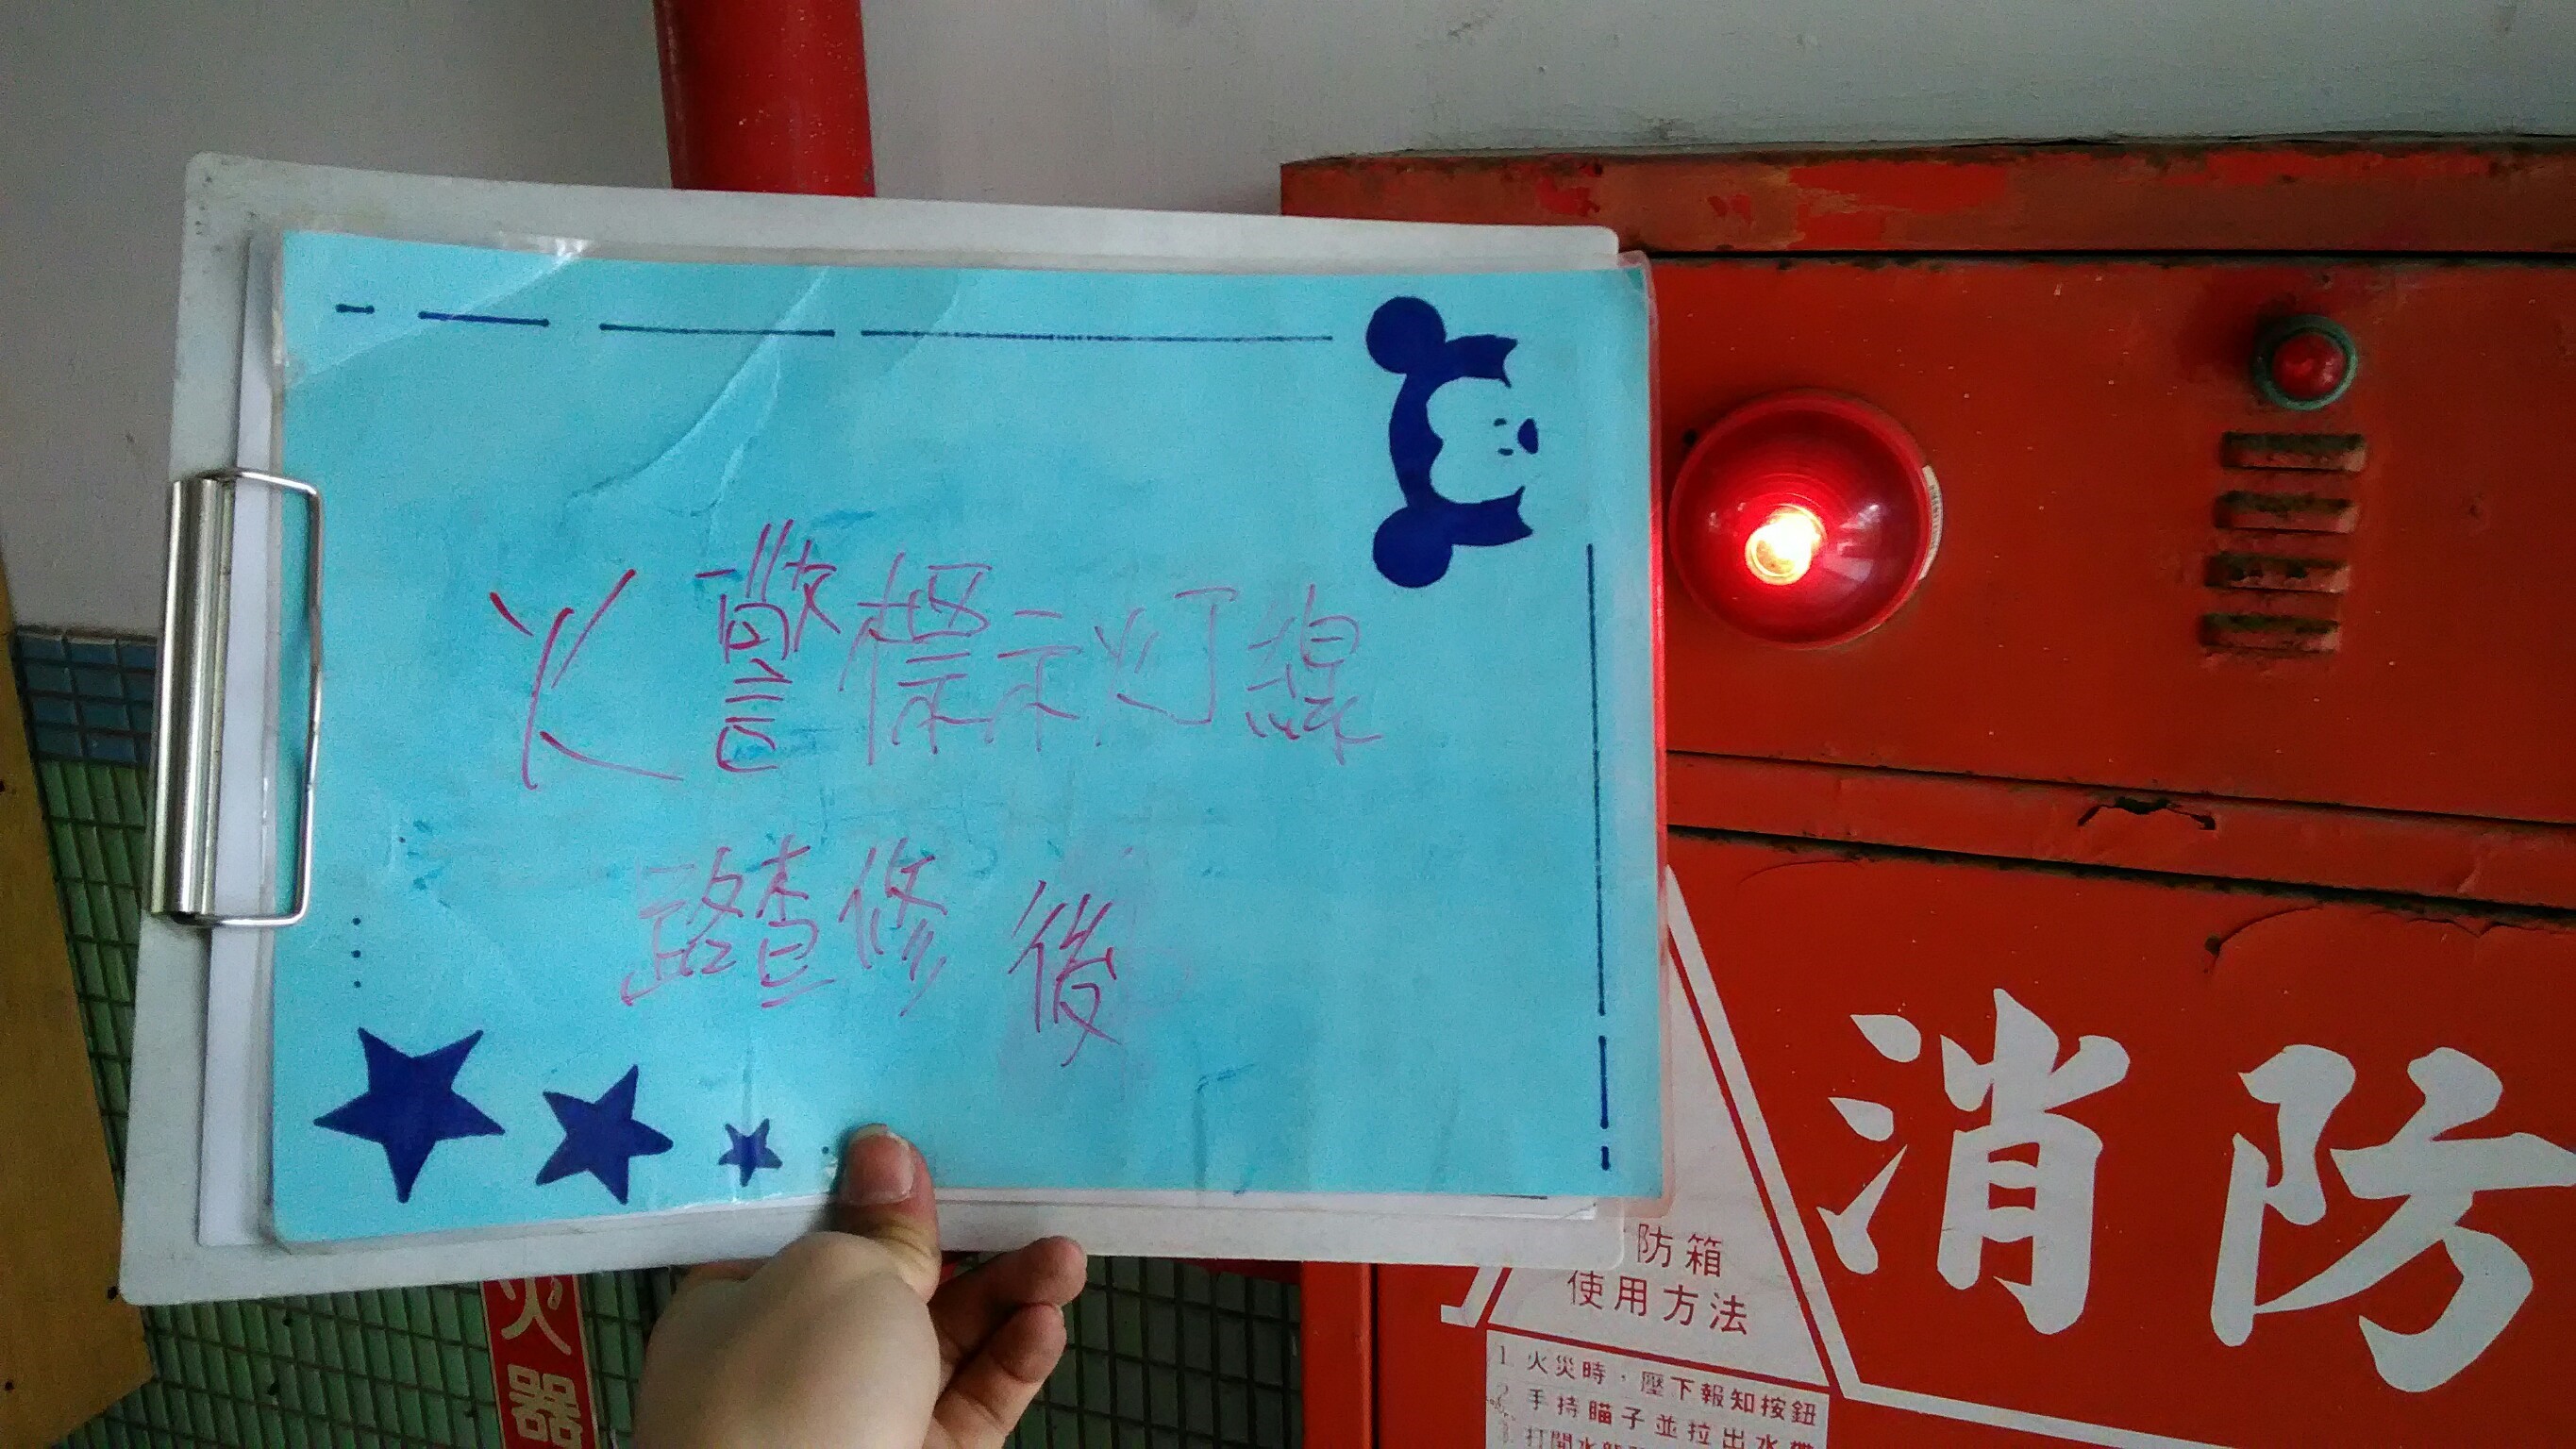 火警標示灯線
路查修後
消防
防箱
使用方法
1. 火災時，壓下報知按鈕
2. 手持瞄子並拉出水帶
3. 打開水
火器